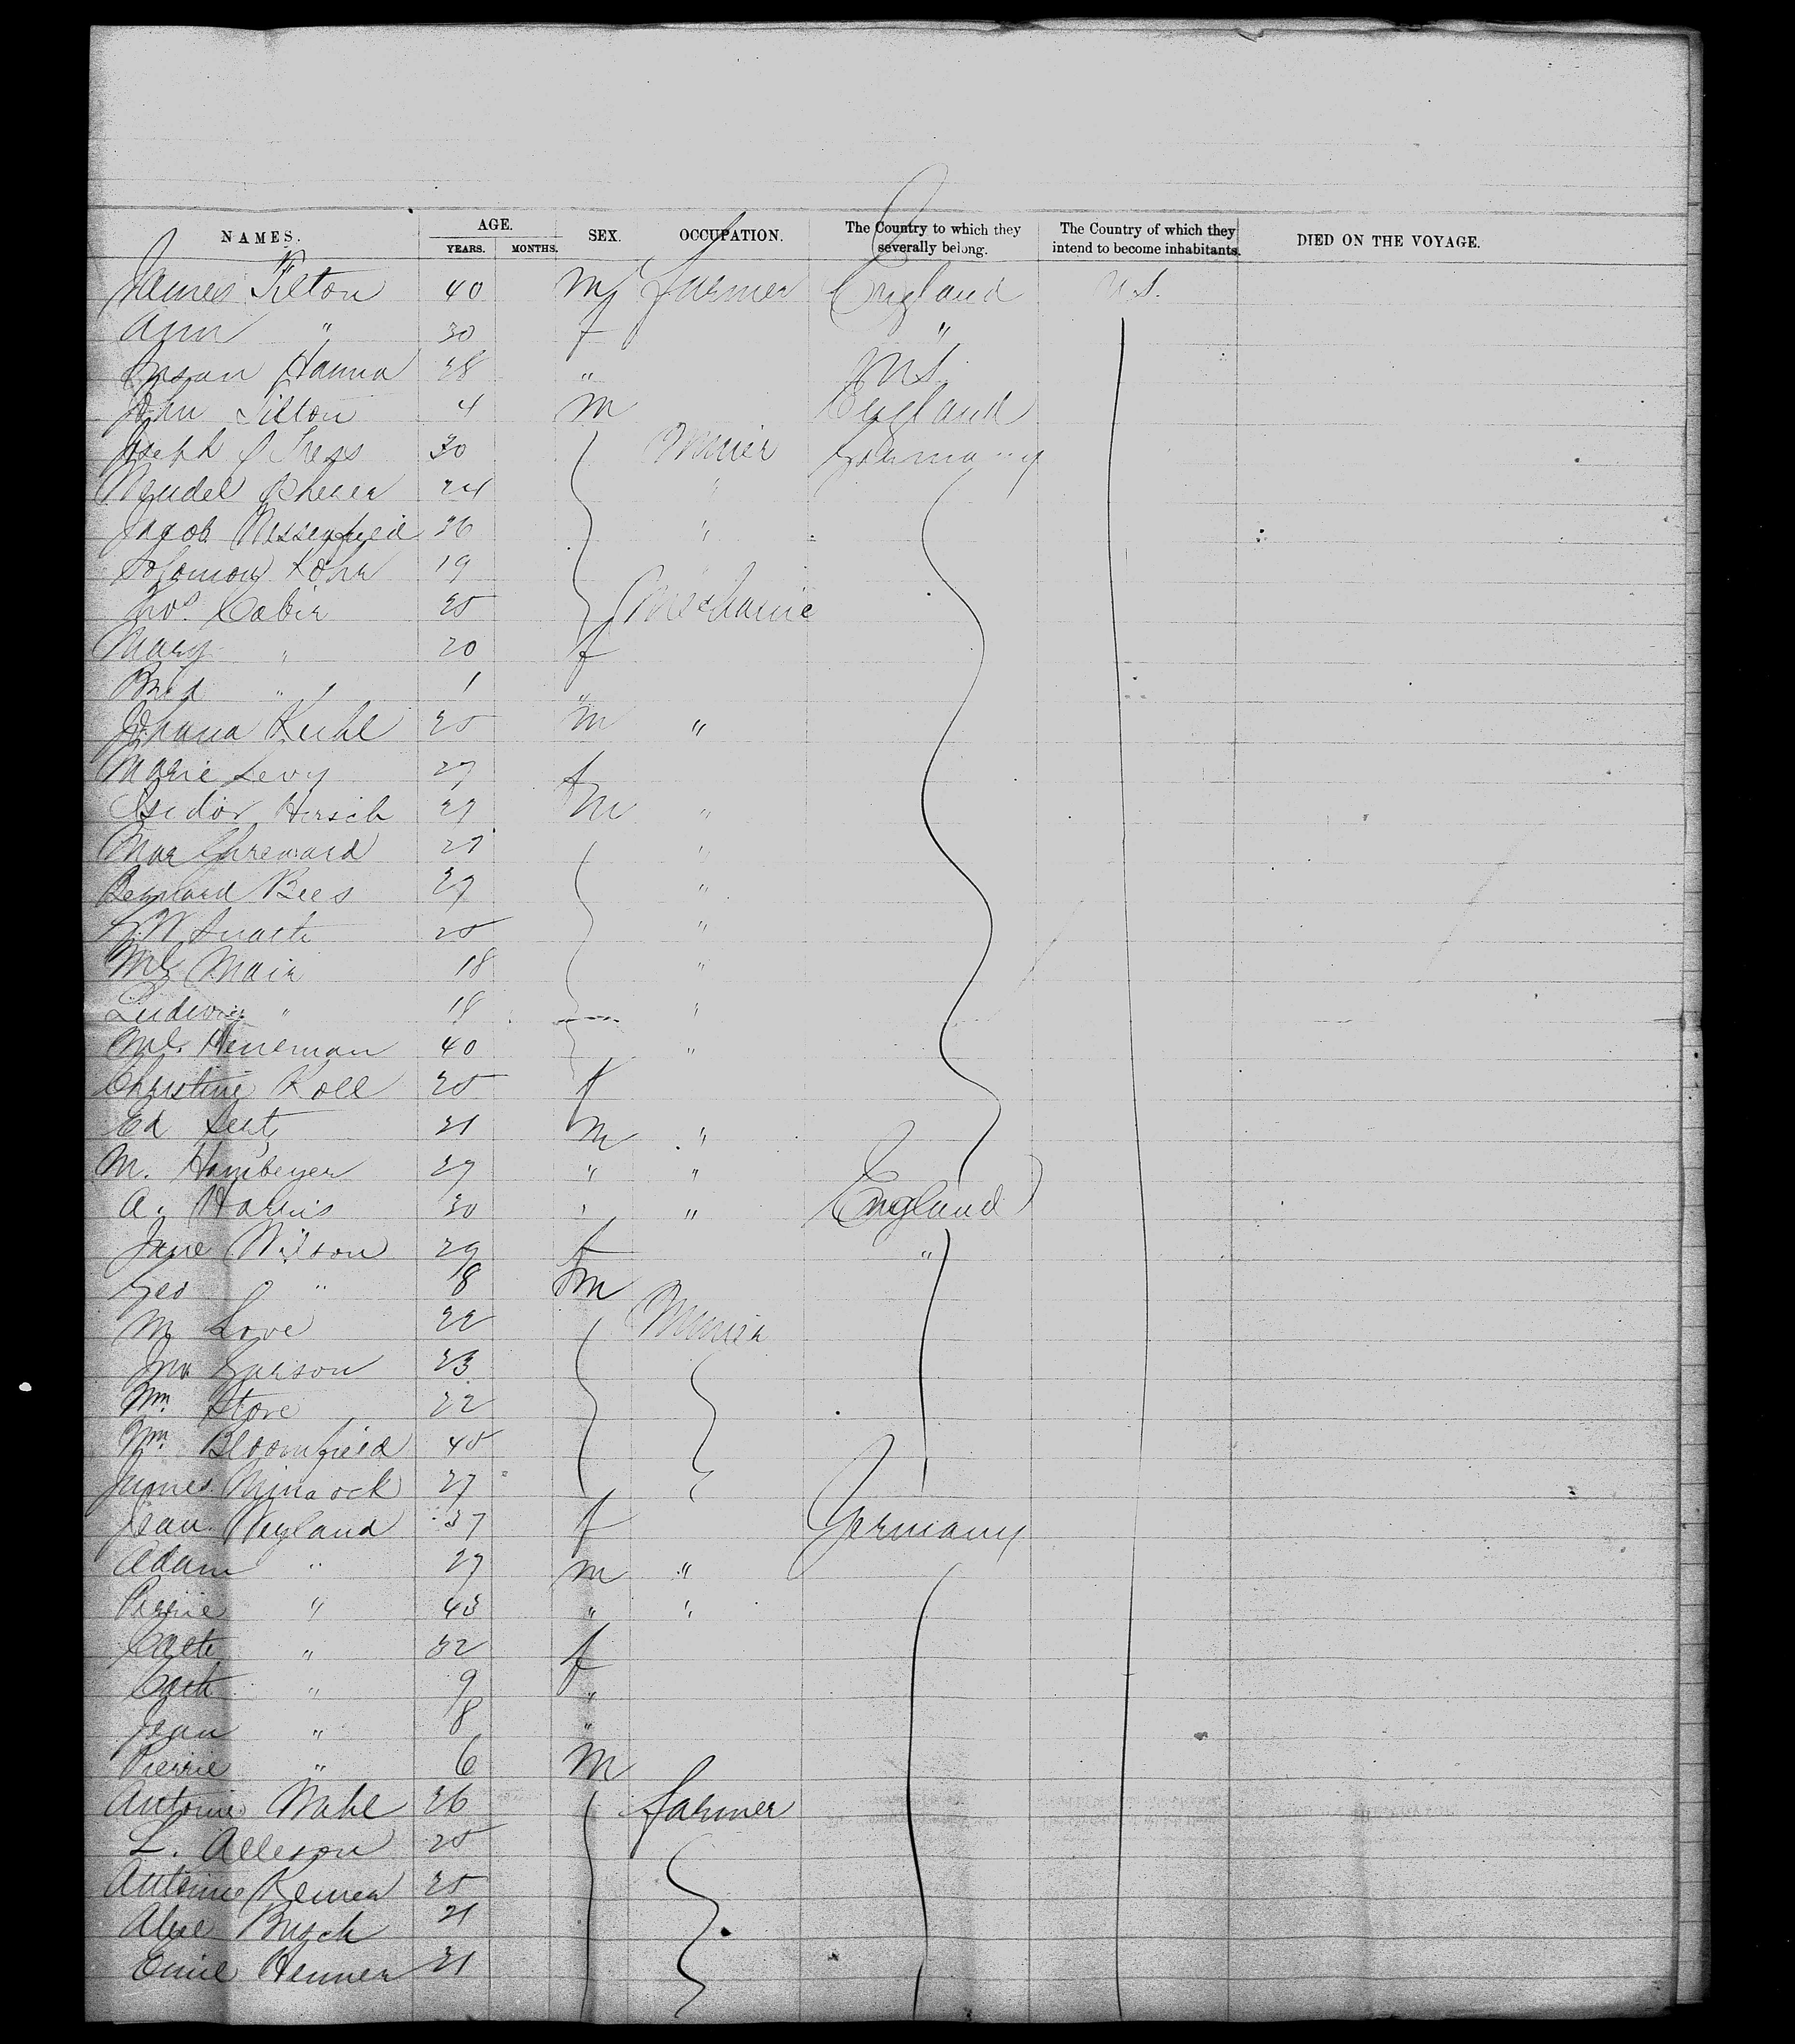 NAMES. AGE. YEARS. MONTHS. SEX. OCCUPATION. The Country to which they severally belong. The Country of which they intend to become inhabitants. DIED ON THE VOYAGE.
James Tilton 40 m farmer England U.S.
Ann " 30 f "
Susan Hanna 28 " U.S.
John Tilton 4 m England
Joseph 30 Miner Germany
24 "
Jacob 26 "
Solomon Kohn 19
Jno. Cabir 25 Mechanic
Mary " 20 f
" 1 "
Johana Kuhl 25 m "
Marie Levy 27 f
Isidor Hirsch 27 m "
27 "
Bernard Bees 27 "
25 "
Ml. Mair 18 "
Ludwig " 18 "
Ml. Heneman 40 "
Christine Koll 25 f
Ed 21 m "
M. Hamberger 27 " "
A. Harris 30 " " England
Jane Wilson 29 f "
Geo " 8 m
M Love 22 Miner
Jno 23
Wm. Stone 22
Wm. Bloomfield 45
James 27
Jean Weyland 37 f Germany
Adam " 27 m "
Pierrie " 43 " "
Cath " 32 f
Cath " 9 "
Jean " 8 "
Pierrie " 6 m
Antoine Mahl 26 farmer
L. Alleson 25
Antoine 25
Busch 21
Emil Henner 21